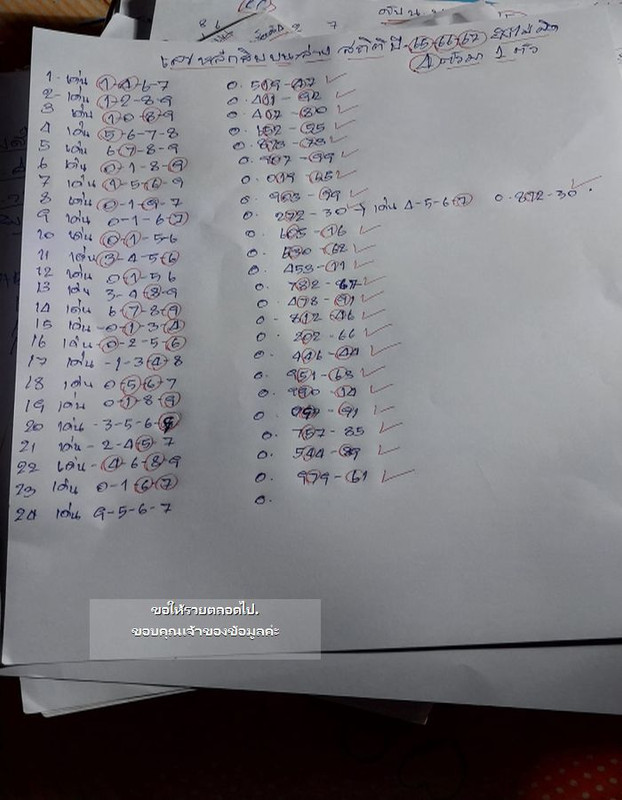 เลขหลักสิบบน-ล่าง สถิติปี-65,66,67
4 ตัวมา 1 ตัว
1- เด่น 1-4-6-7 0. 519-47 ✓
2- เด่น 1-2-8-9 0. 401-92 ✓
3 เด่น 1-0-8-9 0. 407-80 ✓
4 เด่น 5-6-7-8 0. 152-55 ✓
5 เด่น 6-7-8-9 0. 873-79 ✓
6 เด่น 0-1-8-9 0. 907-99 ✓
7 เด่น 1-5-6-9 0. 019-65 ✓
8 เด่น 0-1-9-7 0. 903-19 ✓
9 เด่น 0-1-6-7 0. 272-30 เด่น 4-5-6-7 0-872-30 ✓
10 เด่น 0-1-5-6 0. 605-16 ✓
11 เด่น 3-4-5-6 0. 530-62 ✓
12 เด่น 0 1-5 6 0. 453-11 ✓
13 เด่น 3-4-8-9 0. 782-67 ✓
14 เด่น 6-7-8-9 0. 478-91 ✓
15 เด่น -0-1-3-4 0. 812-46 ✓
16 เด่น -0-2-5-6 0. 202-66 ✓
17 เด่น -1-3-4-8 0. 446-44 ✓
18 เด่น 0-5-6-7 0. 951-68 ✓
19 เด่น 0-1-8-9 0. 990-14 ✓
20 เด่น -3-5-6-9 0. 997-91 ✓
21 เด่น -2-4-5-7 0. 757-85 ✓
22 เด่น -4-6-8-9 0. 544-89 ✓
23 เด่น 0-1-6-7 0. 979-61 ✓
24 เด่น 9-5-6-7 0.
ขอให้รวยตลอดไป.
ขอบคุณเจ้าของข้อมูลค่ะ